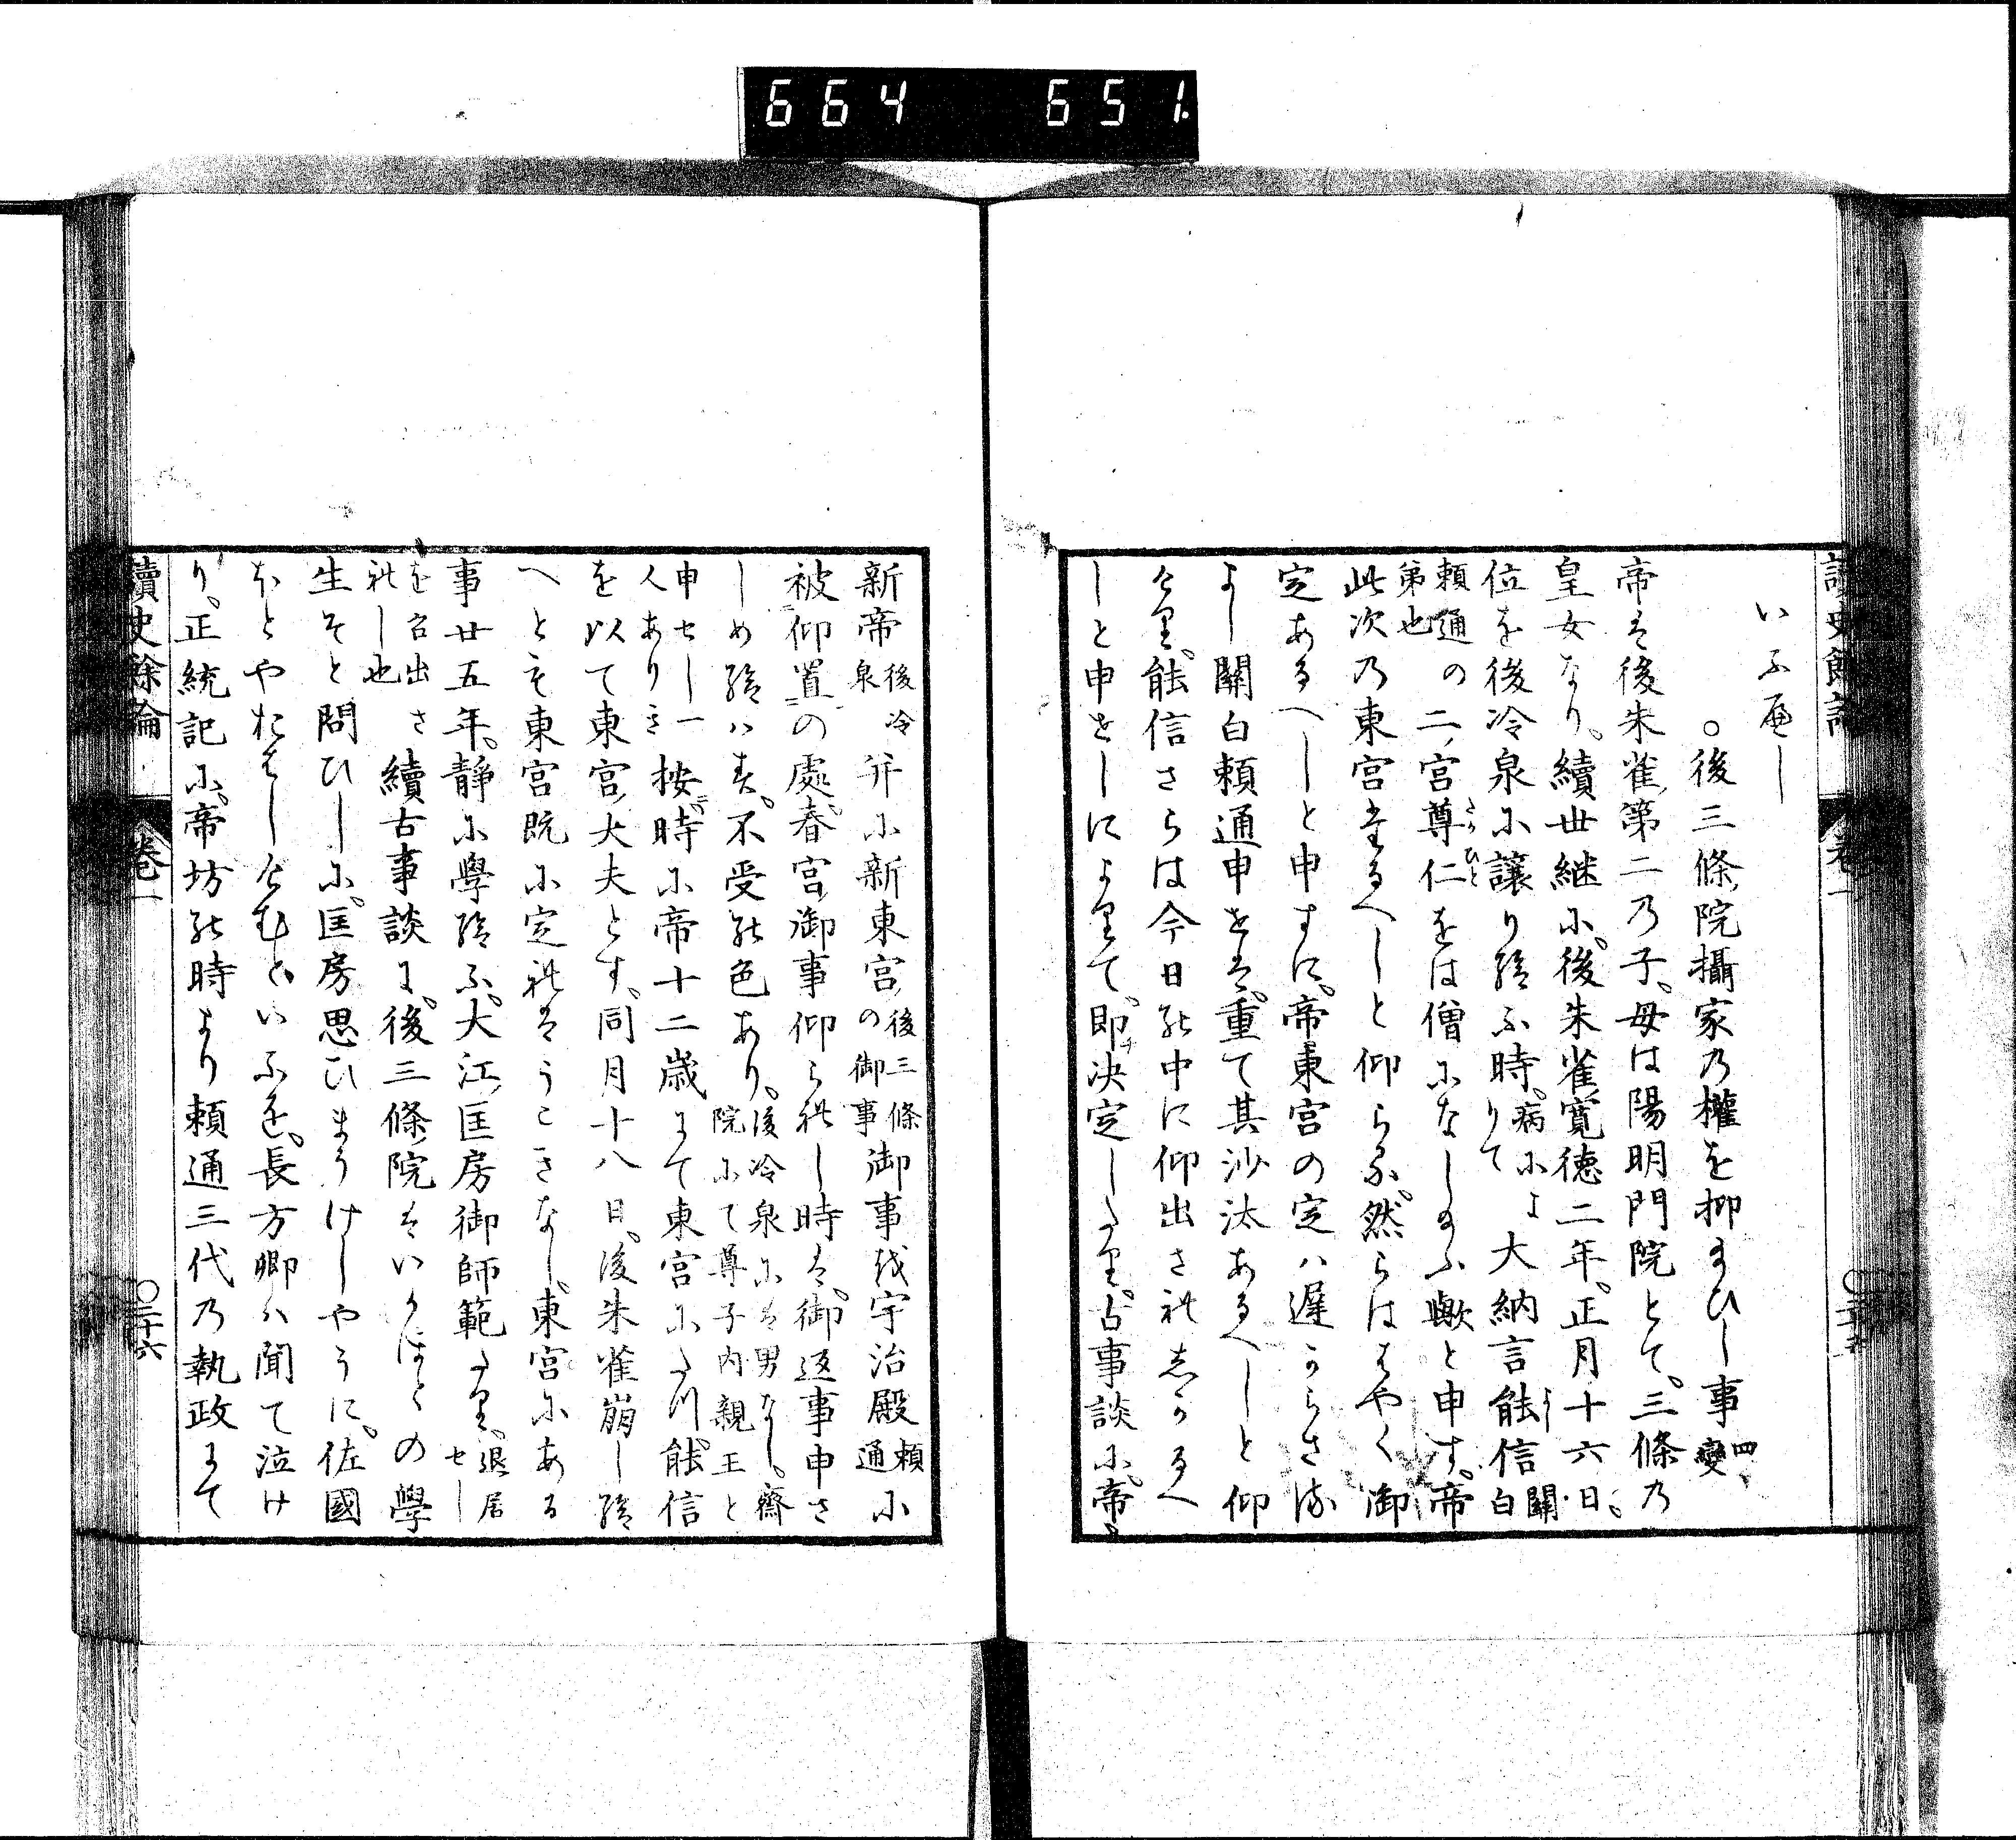 664 651
讀史餘論 卷一
いふ届し
○後三條院攝家乃權を抑まひし事 四變
帝は後朱雀第二の子。母は陽明門院とて。三條乃
皇女なり。續世継に。後朱雀寛徳二年。正月十六日。
位を後冷泉に譲り給ふ時。病により て大納言能信 關白
頼通の第也 二宮尊仁をは僧になし給ふ歟と申す。帝
此次乃東宮なるへしと仰らる。然らははやく御
定あるへしと申すに。帝東宮の定ハ遅からさる
よし關白頼通申せは。重て其沙汰あるへしと仰
ける。能信さらは今日の中に仰出されしかるへ
しと申せしによりて。即決定したり。古事談に。帝
新帝 後冷泉 并に新東宮 後三條の御事 御事を宇治殿 頼通 に
被仰置の處。春宮御事仰られし時は。御返事申さ
しめ給ハす。不受の色あり。後冷泉には男なし。齋院にて尊子内親王と
申せし一人ありき 按時に帝十二歳にて東宮にたつ。能信
を以て東宮大夫とす。同月十八日。後朱雀崩し給
へとも東宮既に定れはうこきなし。東宮にある
事廿五年。靜に學給ふ。大江匡房御師範たり。退居せし
を召出されし也 續古事談に。後三條院はいかほとの學
生そと問ひしに。匡房思ひまうけしやうに。佐國
ほとやおはしけむといふを。長方卿ハ聞て泣け
り。正統記に。帝坊の時より頼通三代乃執政にて
讀史餘論 卷一 ○三十六